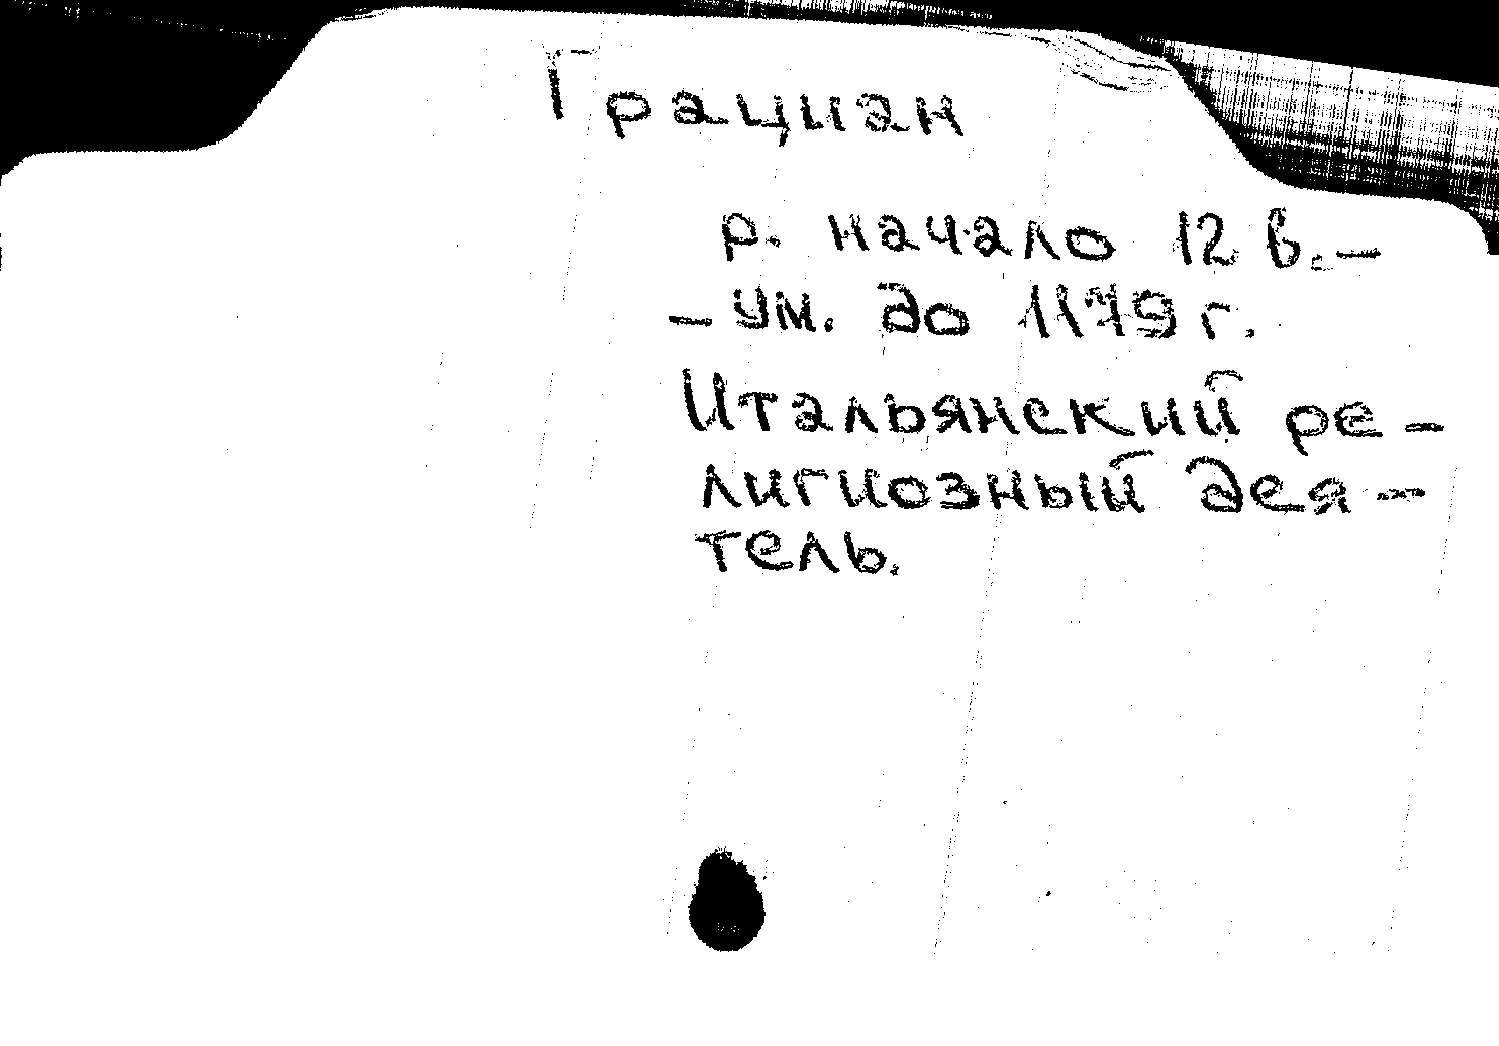 Грациан
р. начало 12 в. –
– ум. до 1179 г.
Итальянский ре-
лигиозный дея-
тель.